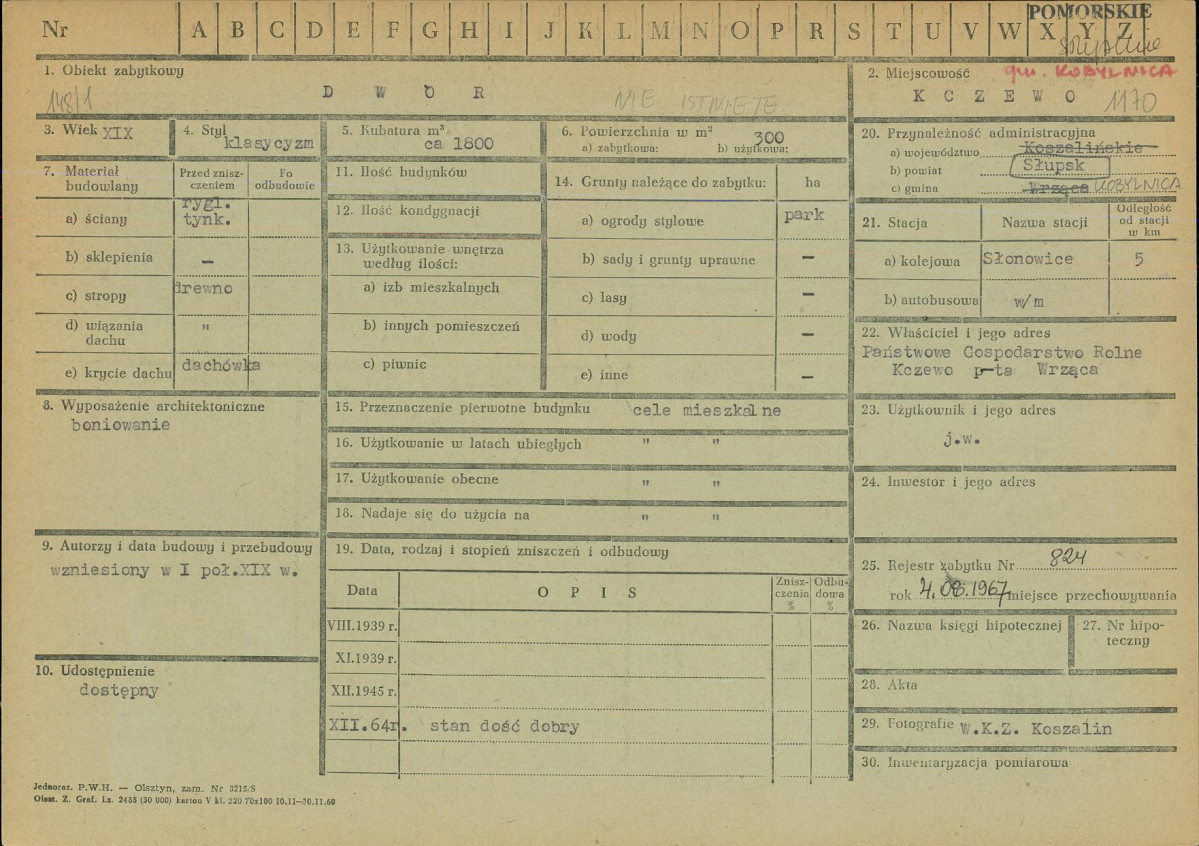 POMORSKIE
Nr A B C D E F G H I J K L M N O P R S T U V W X Y Z
1. Obiekt zabytkowy
148/1
D W Ó R
NIE ISTNIEJE
2. Miejscowość
gm. KOBYLNICA
K C Z E W O
1170
3. Wiek XIX
4. Styl
klasycyzm
5. Kubatura m³
ca 1800
6. Powierzchnia w m²
300
a) zabytkowa: b) użytkowa:
7. Materiał budowlany
Przed zniszczeniem
Po odbudowie
a) ściany
rygl.
tynk.
b) sklepienia —
c) stropy drewno
d) wiązania dachu "
e) krycie dachu dachówka
8. Wyposażenie architektoniczne
boniowanie
9. Autorzy i data budowy i przebudowy
wzniesiony w I poł.XIX w.
10. Udostępnienie
dostępny
11. Ilość budynków
12. Ilość kondygnacji
13. Użytkowanie wnętrza
według ilości:
a) izb mieszkalnych
b) innych pomieszczeń
c) piwnic
14. Grunty należące do zabytku: ha
a) ogrody stylowe park
b) sady i grunty uprawne —
c) lasy —
d) wody —
e) inne —
15. Przeznaczenie pierwotne budynku cele mieszkalne
16. Użytkowanie w latach ubiegłych " "
17. Użytkowanie obecne " "
18. Nadaje się do użycia na " "
19. Data, rodzaj i stopień zniszczeń i odbudowy
Data O P I S Zniszczenia % Odbudowa %
VIII.1939 r.
XI.1939 r.
XII.1945 r.
XII.64r. stan dość dobry
20. Przynależność administracyjna
a) województwo Koszalińskie
b) powiat Słupsk
c) gmina Wrząca KOBYLNICA
21. Stacja Nazwa stacji Odległość od stacji w km
a) kolejowa Słonowice 5
b) autobusowa w/m
22. Właściciel i jego adres
Państwowe Gospodarstwo Rolne
Kczewo p-ta Wrząca
23. Użytkownik i jego adres
j.w.
24. Inwestor i jego adres
25. Rejestr zabytku Nr 824
rok 4.08.1967 miejsce przechowywania
26. Nazwa księgi hipotecznej
27. Nr hipoteczny
28. Akta
29. Fotografie W.K.Z. Koszalin
30. Inwentaryzacja pomiarowa
Jednoraz. P.W.H. — Olsztyn, zam. Nr 3215/S
Olszt. Z. Graf. Lz. 2485 (30 000) karton V kl. 220 70x100 10.11—30.11.60